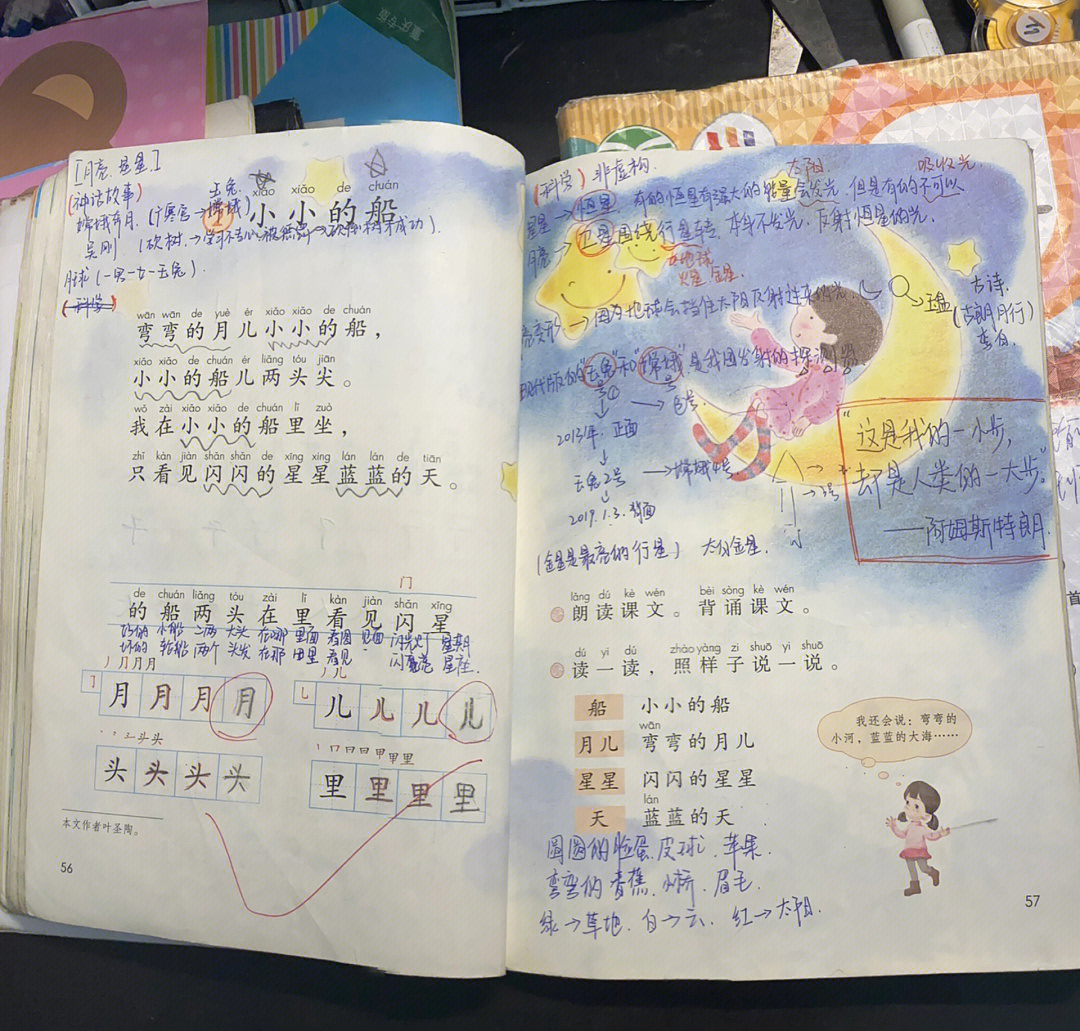 重庆专版
[月亮.星星.]
(神话故事)
玉兔
xiǎo xiǎo de chuán
小小的船
嫦娥奔月.(广寒宫→嫦娥)
吴刚
月球(一男一女一玉兔).
(科学)
wān wān de yuè ér xiǎo xiǎo de chuán
弯弯的月儿小小的船，
xiǎo xiǎo de chuán ér liǎng tóu jiān
小小的船儿两头尖。
wǒ zài xiǎo xiǎo de chuán lǐ zuò
我在小小的船里坐，
zhǐ kàn jiàn shǎn shǎn de xīng xing lán lán de tiān
只看见闪闪的星星蓝蓝的天。
门
de chuán liǎng tóu zài lǐ kàn jiàn shǎn xīng
的船两头在里看见闪星
小船 大头 在哪 里面 看图 见面 闪光灯 星期
轮船 两个 头发 在那 田里 看见 星座
月月月月
儿儿儿儿
头头头头
里里里里
本文作者叶圣陶。
56
(科学) 非虚构.
太阳
吸收光.
星星→恒星. 有的恒星有强大的能量会发光.但是有的不可以
月亮→卫星围绕行星转. 本身不发光.反射恒星的光.
地球
火星 金星
→因为地球会挡住太阳反射过来的光.
玉盘
古诗.
(古朗月行)
李白.
现代版的"玉兔"和"嫦娥"是我国发射的探测器
2013年.正面
玉兔2号→嫦娥4号.
2019.1.3.背面
"这是我的一小步,
却是人类的一大步"
——阿姆斯特朗.
(金星是最亮的行星) 太白金星.
lǎng dú kè wén bèi sòng kè wén
朗读课文。背诵课文。
dú yi dú zhào yàng zi shuō yi shuō
读一读，照样子说一说。
船 小小的船
wān
月儿 弯弯的月儿
星星 闪闪的星星
lán
天 蓝蓝的天
我还会说：弯弯的
小河，蓝蓝的大海……
圆圆的脸蛋.皮球.苹果.
弯弯的香蕉.小桥.眉毛.
绿→草地.白→云.红→太阳.
57